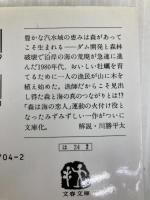 豊かな汽水域の恵みは森があって
こそ生まれる――ダム開発と森林
破壊で沿岸の海の荒廃が急速に進
んだ1980年代、おいしい牡蠣を育
てるために一人の漁民が山に木を
植え始めた。漁師だからこそ見出
し得た森と海の真のつながりとは!?
「森は海の恋人」運動の火付け役と
なったみずみずしい一作がついに
文庫化。 解説・川勝平太
04-2
は 24 2
文春文庫